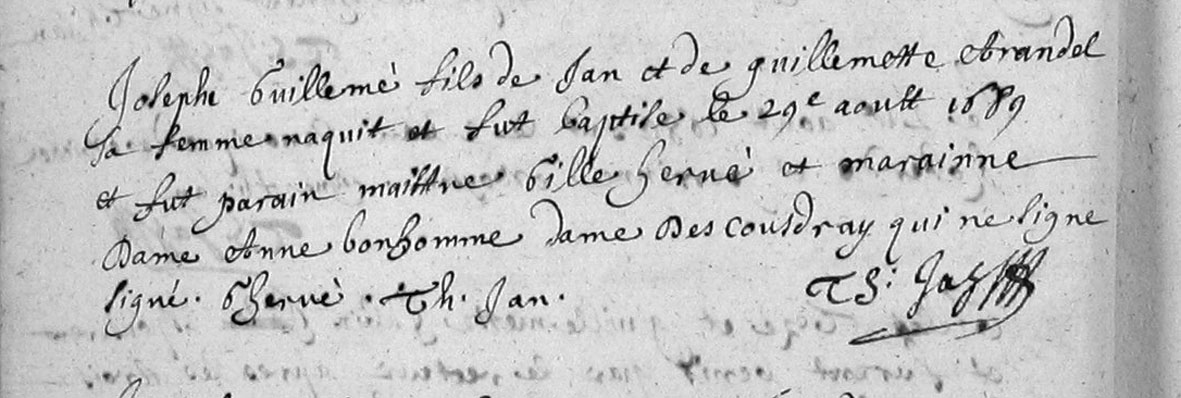 Josephe Guillemé fils de Jan et de guillemette Arandel
sa femme naquit et fut baptise le 29e aoust 1689
et fut parain maistre Gille hervé et marainne
Dame Anne bonhomme dame Des Cousdray qui ne signe
signé. G hervé. Th. Jan.
Th. Jan